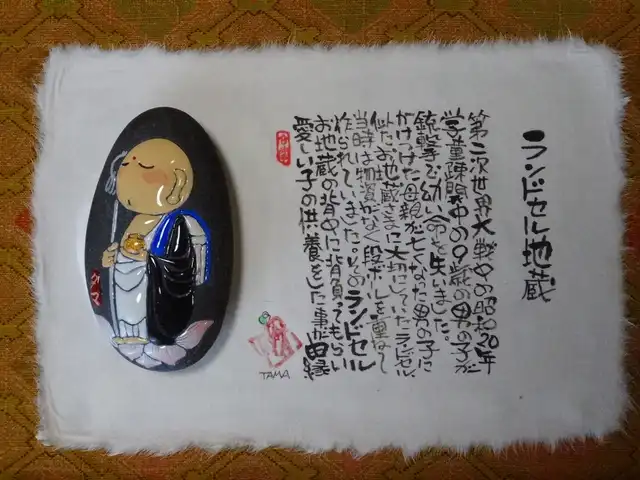 ランドセル地蔵
第二次世界大戦中の昭和20年
学童疎開中の9歳の男の子が
銃撃で幼い命を失いました。
かけつけた母親が亡くなった男の子に
似たお地蔵さまに大切にしていたランドセル、
当時は物資がなく段ボールを重ねて
作られていました。そのランドセル
お地蔵の背中に背負ってもらい
愛しい子の供養をした事が由縁
TAMA
タマ